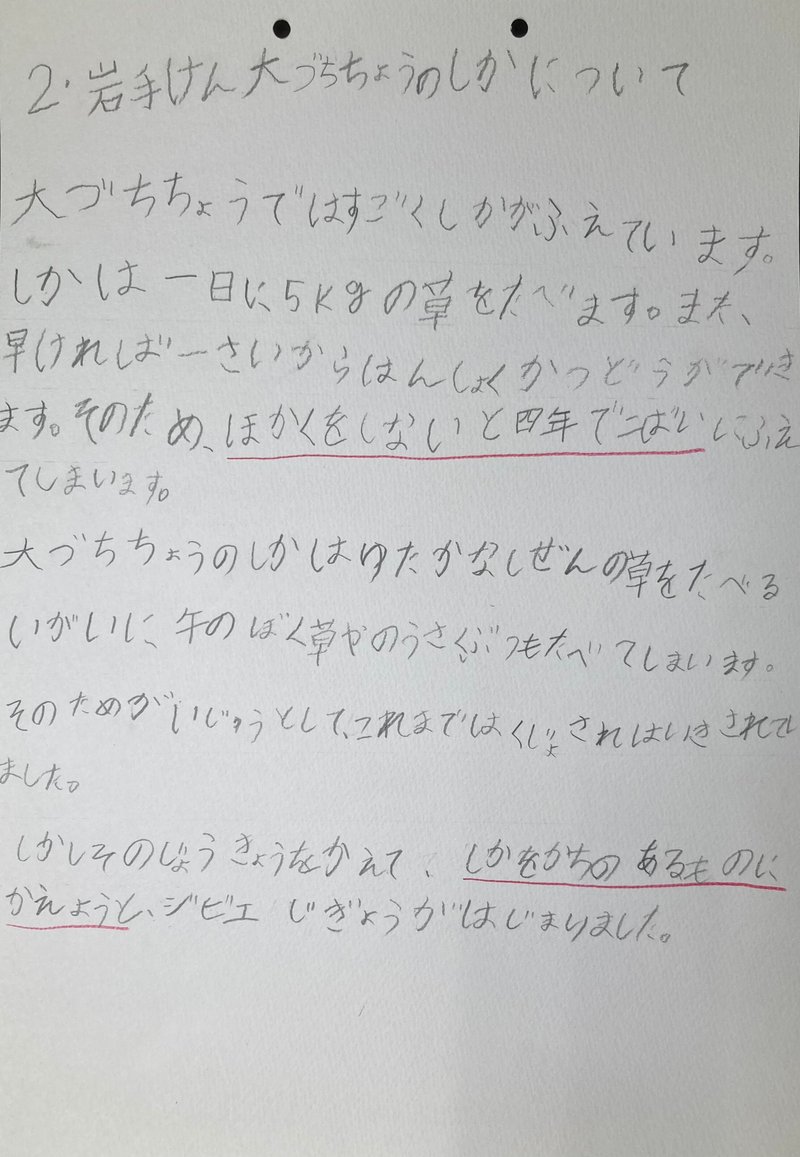 2.岩手けん大づちちょうのしかについて
大づちちょうではすごくしかがふえています。
しかは一日に5kgの草をたべます。また、
早ければ一さいからはんしょくかつどうができ
ます。そのため、ほかくをしないと四年でニばいにふえ
てしまいます。
大づちちょうのしかはゆたかなしぜんの草をたべる
いがいに、午のぼく草やのうさくぶつもたべてしまいます。
そのためがいじゅうとして、これまではくじょされはいきされてい
ました。
しかしそのじょうきょうをかえて、しかをかちのあるものに
かえようと、ジビエじぎょうがはじまりました。